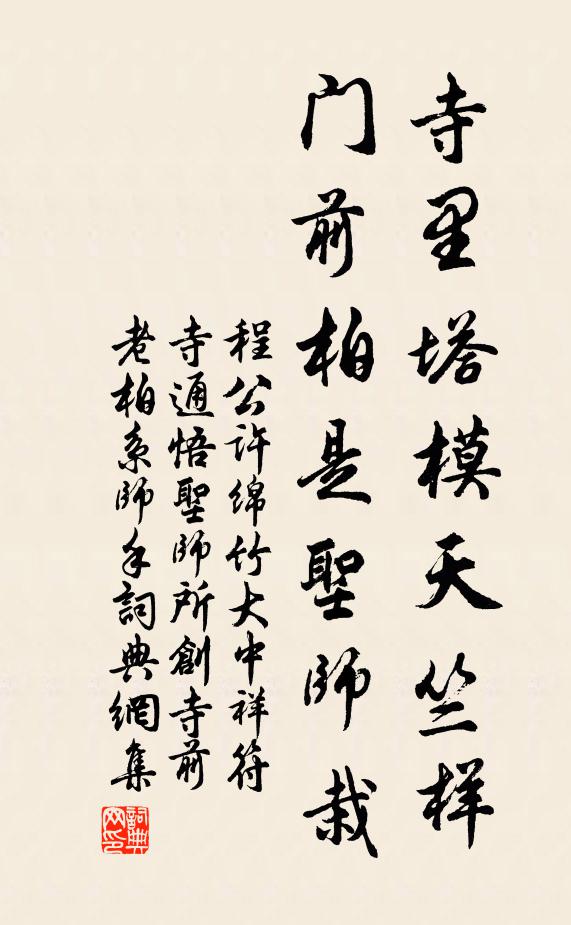 寺里塔模天竺样
门前柏是聖师栽
程公许绵竹大中祥符
寺通悟聖师所創寺前
老柏系师手詞典網集
詞典网印